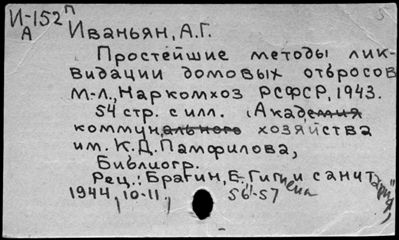 И-152п
А
Иваньян, А.Г.
Простейшие методы лик-
видации домовых отбросов
М.-Л., Наркомхоз РСФСР, 1943.
54 стр. с илл. (Академия
коммунального хозяйства
им. К.Д. Памфилова,
Библиогр.
Рец.: Брагин, Е. Гигиена и санитария,
1944, 10-11, 56-57